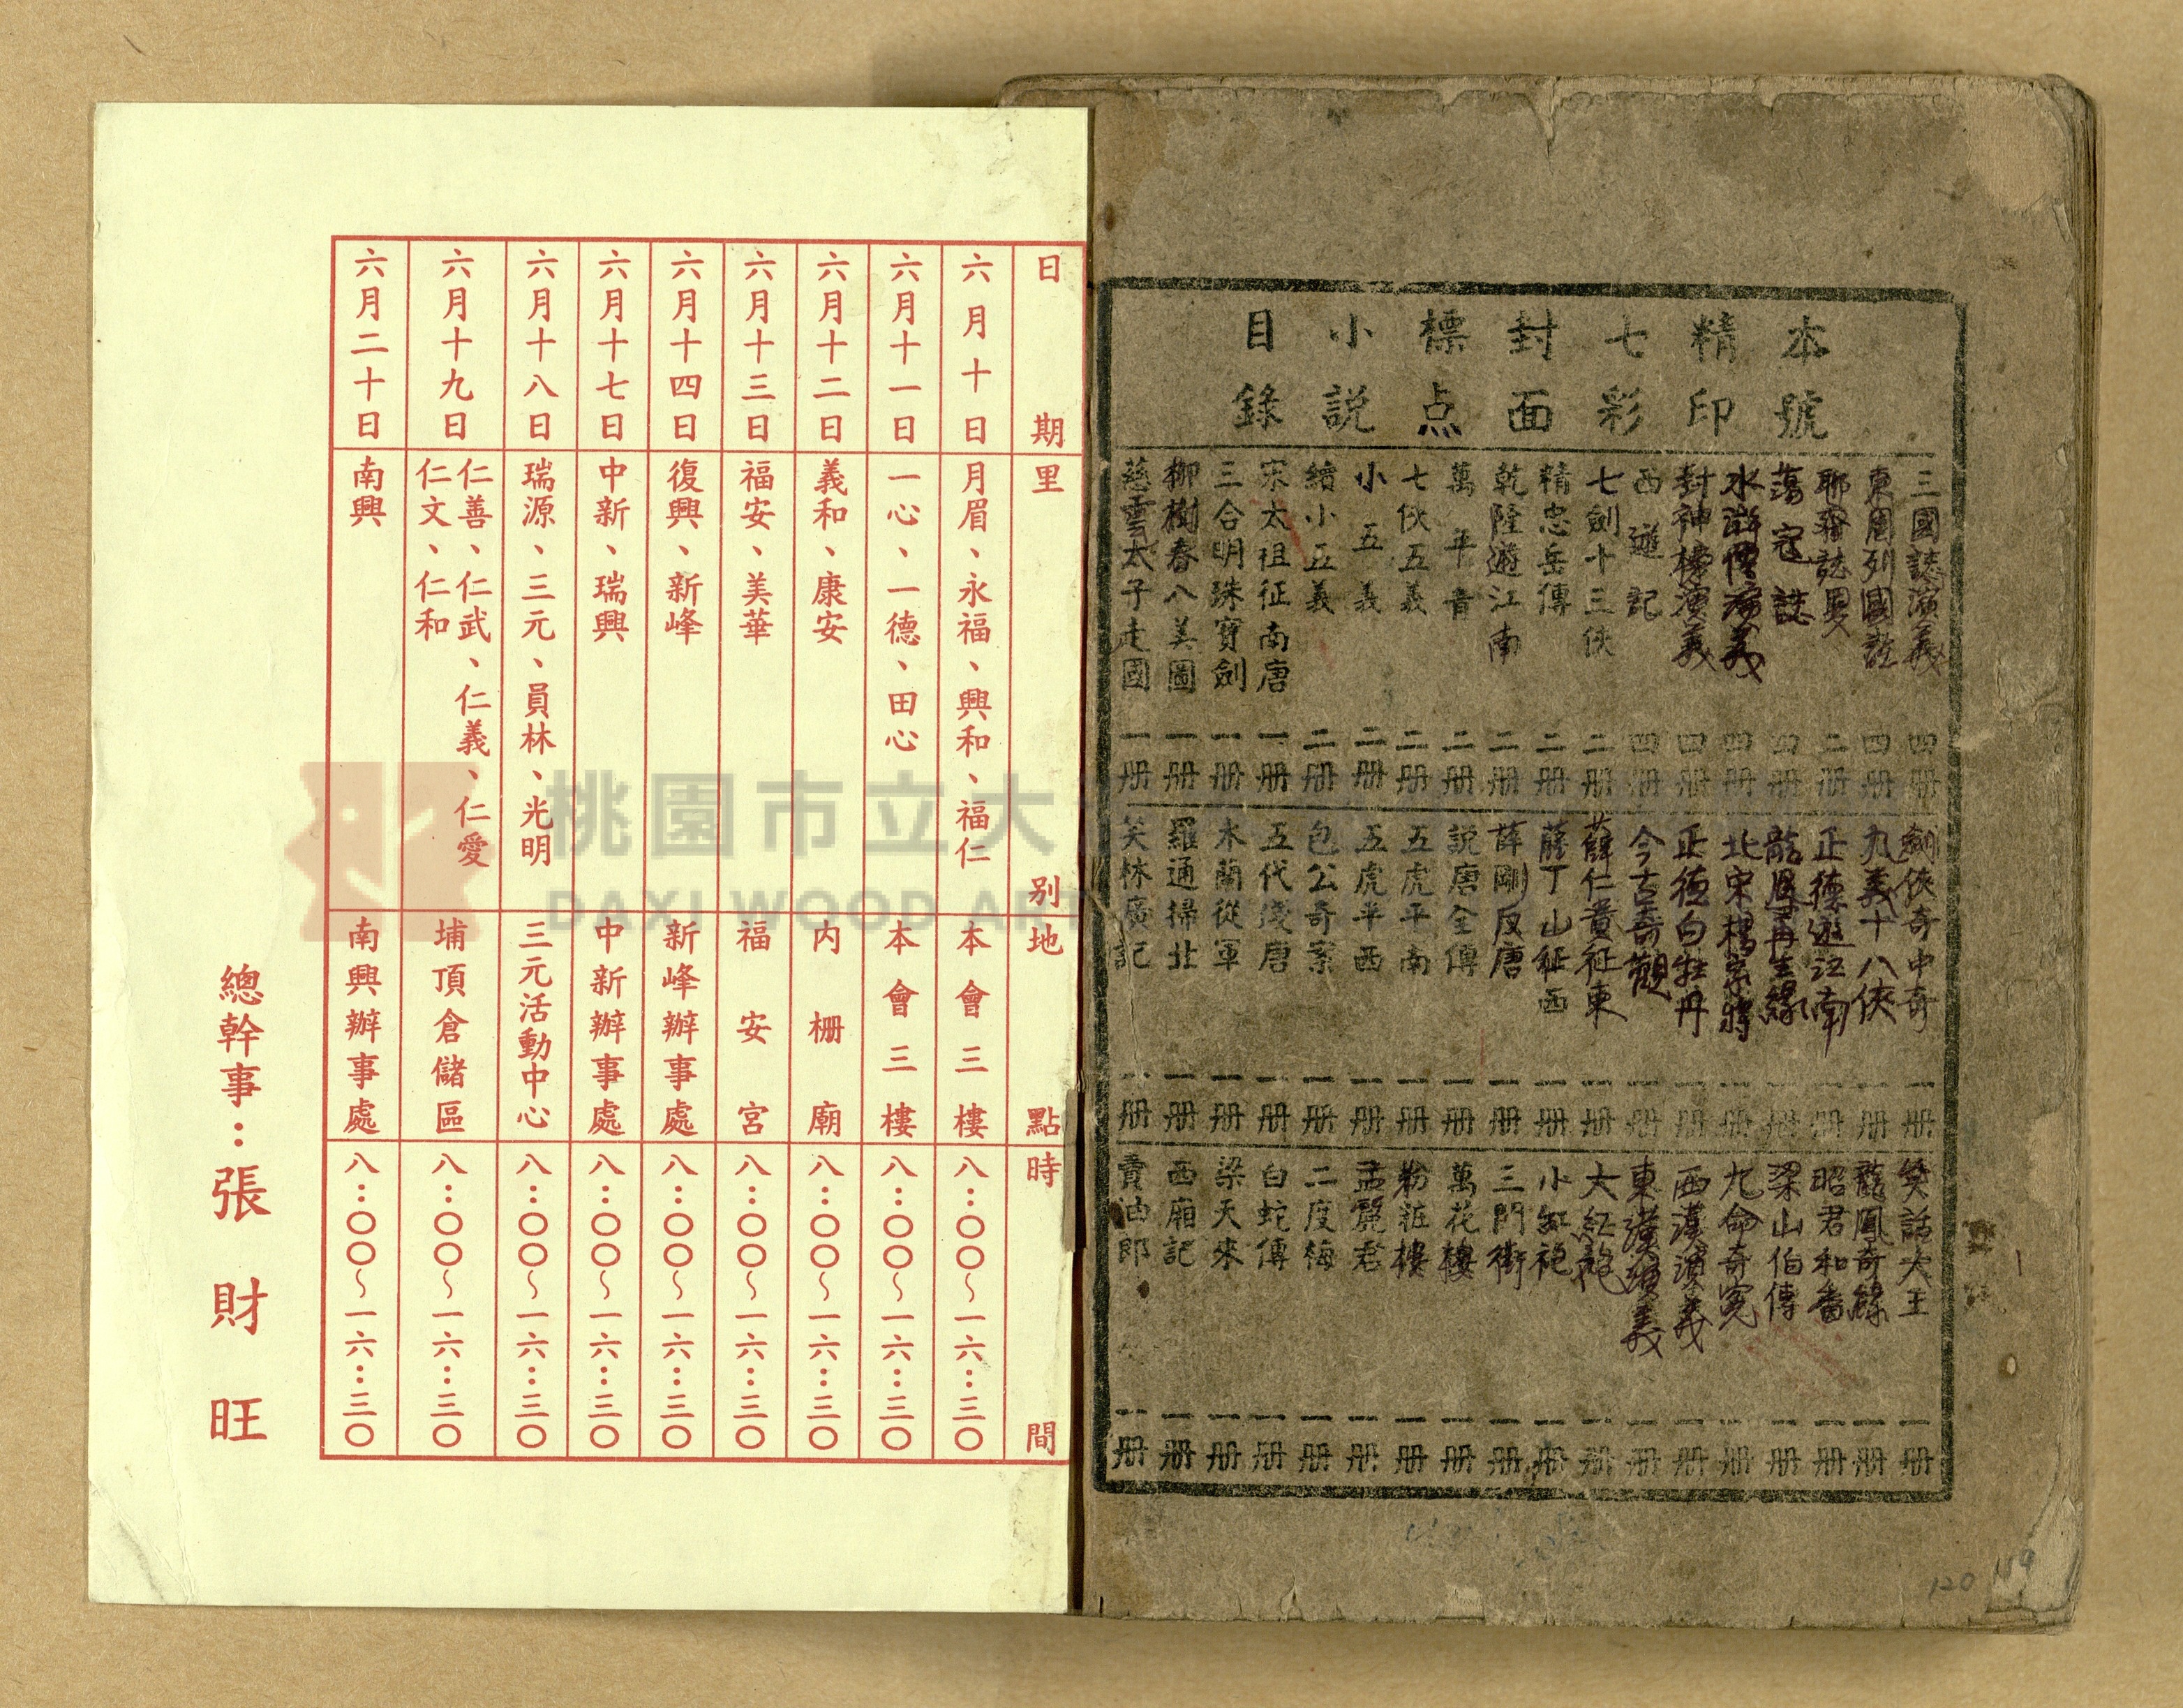 本號
精印
七彩
封面
標点
小説
目錄
三國誌演義 四册
東周列國誌 四册
聊齋誌異 二册
蕩寇誌 四册
水滸傳演義 四册
封神榜演義 四册
西遊記 四册
七劍十三俠 二册
精忠岳傳 二册
乾隆遊江南 二册
萬年青 二册
七俠五義 二册
小五義 二册
續小五義 二册
宋太祖征南唐 一册
三合明珠寶劍 一册
柳樹春八美圖 一册
慈雲太子走國 一册
劍俠奇中奇 一册
九義十八俠 一册
正德遊江南 一册
再生緣 一册
北宋楊家將 一册
正德白牡丹 一册
今古奇觀 一册
薛仁貴征東 一册
薛丁山征西 一册
薛剛反唐 一册
説唐全傳 一册
五虎平南 一册
五虎平西 一册
包公奇案 一册
五代殘唐 一册
木蘭從軍 一册
羅通掃北 一册
笑林廣記 一册
笑話大王 一册
龍鳳奇緣 一册
昭君和番 一册
梁山伯傳 一册
九命奇冤 一册
西漢演義 一册
東漢演義 一册
大紅袍 一册
小紅袍 一册
三門街 一册
萬花樓 一册
粉粧樓 一册
孟麗君 一册
二度梅 一册
白蛇傳 一册
梁天來 一册
西廂記 一册
賣油郎 一册
120
119
日期 里别 地點 時間
六月十日 月眉、永福、興和、福仁 本會三樓 八：〇〇～一六：三〇
六月十一日 一心、一德、田心 本會三樓 八：〇〇～一六：三〇
六月十二日 義和、康安 内栅廟 八：〇〇～一六：三〇
六月十三日 福安、美華 福安宮 八：〇〇～一六：三〇
六月十四日 復興、新峰 新峰辦事處 八：〇〇～一六：三〇
六月十七日 中新、瑞興 中新辦事處 八：〇〇～一六：三〇
六月十八日 瑞源、三元、員林、光明 三元活動中心 八：〇〇～一六：三〇
六月十九日 仁善、仁武、仁義、仁愛
仁文、仁和 埔頂倉儲區 八：〇〇～一六：三〇
六月二十日 南興 南興辦事處 八：〇〇～一六：三〇
總幹事：張財旺
桃園市立大
DAXI WOOD ART